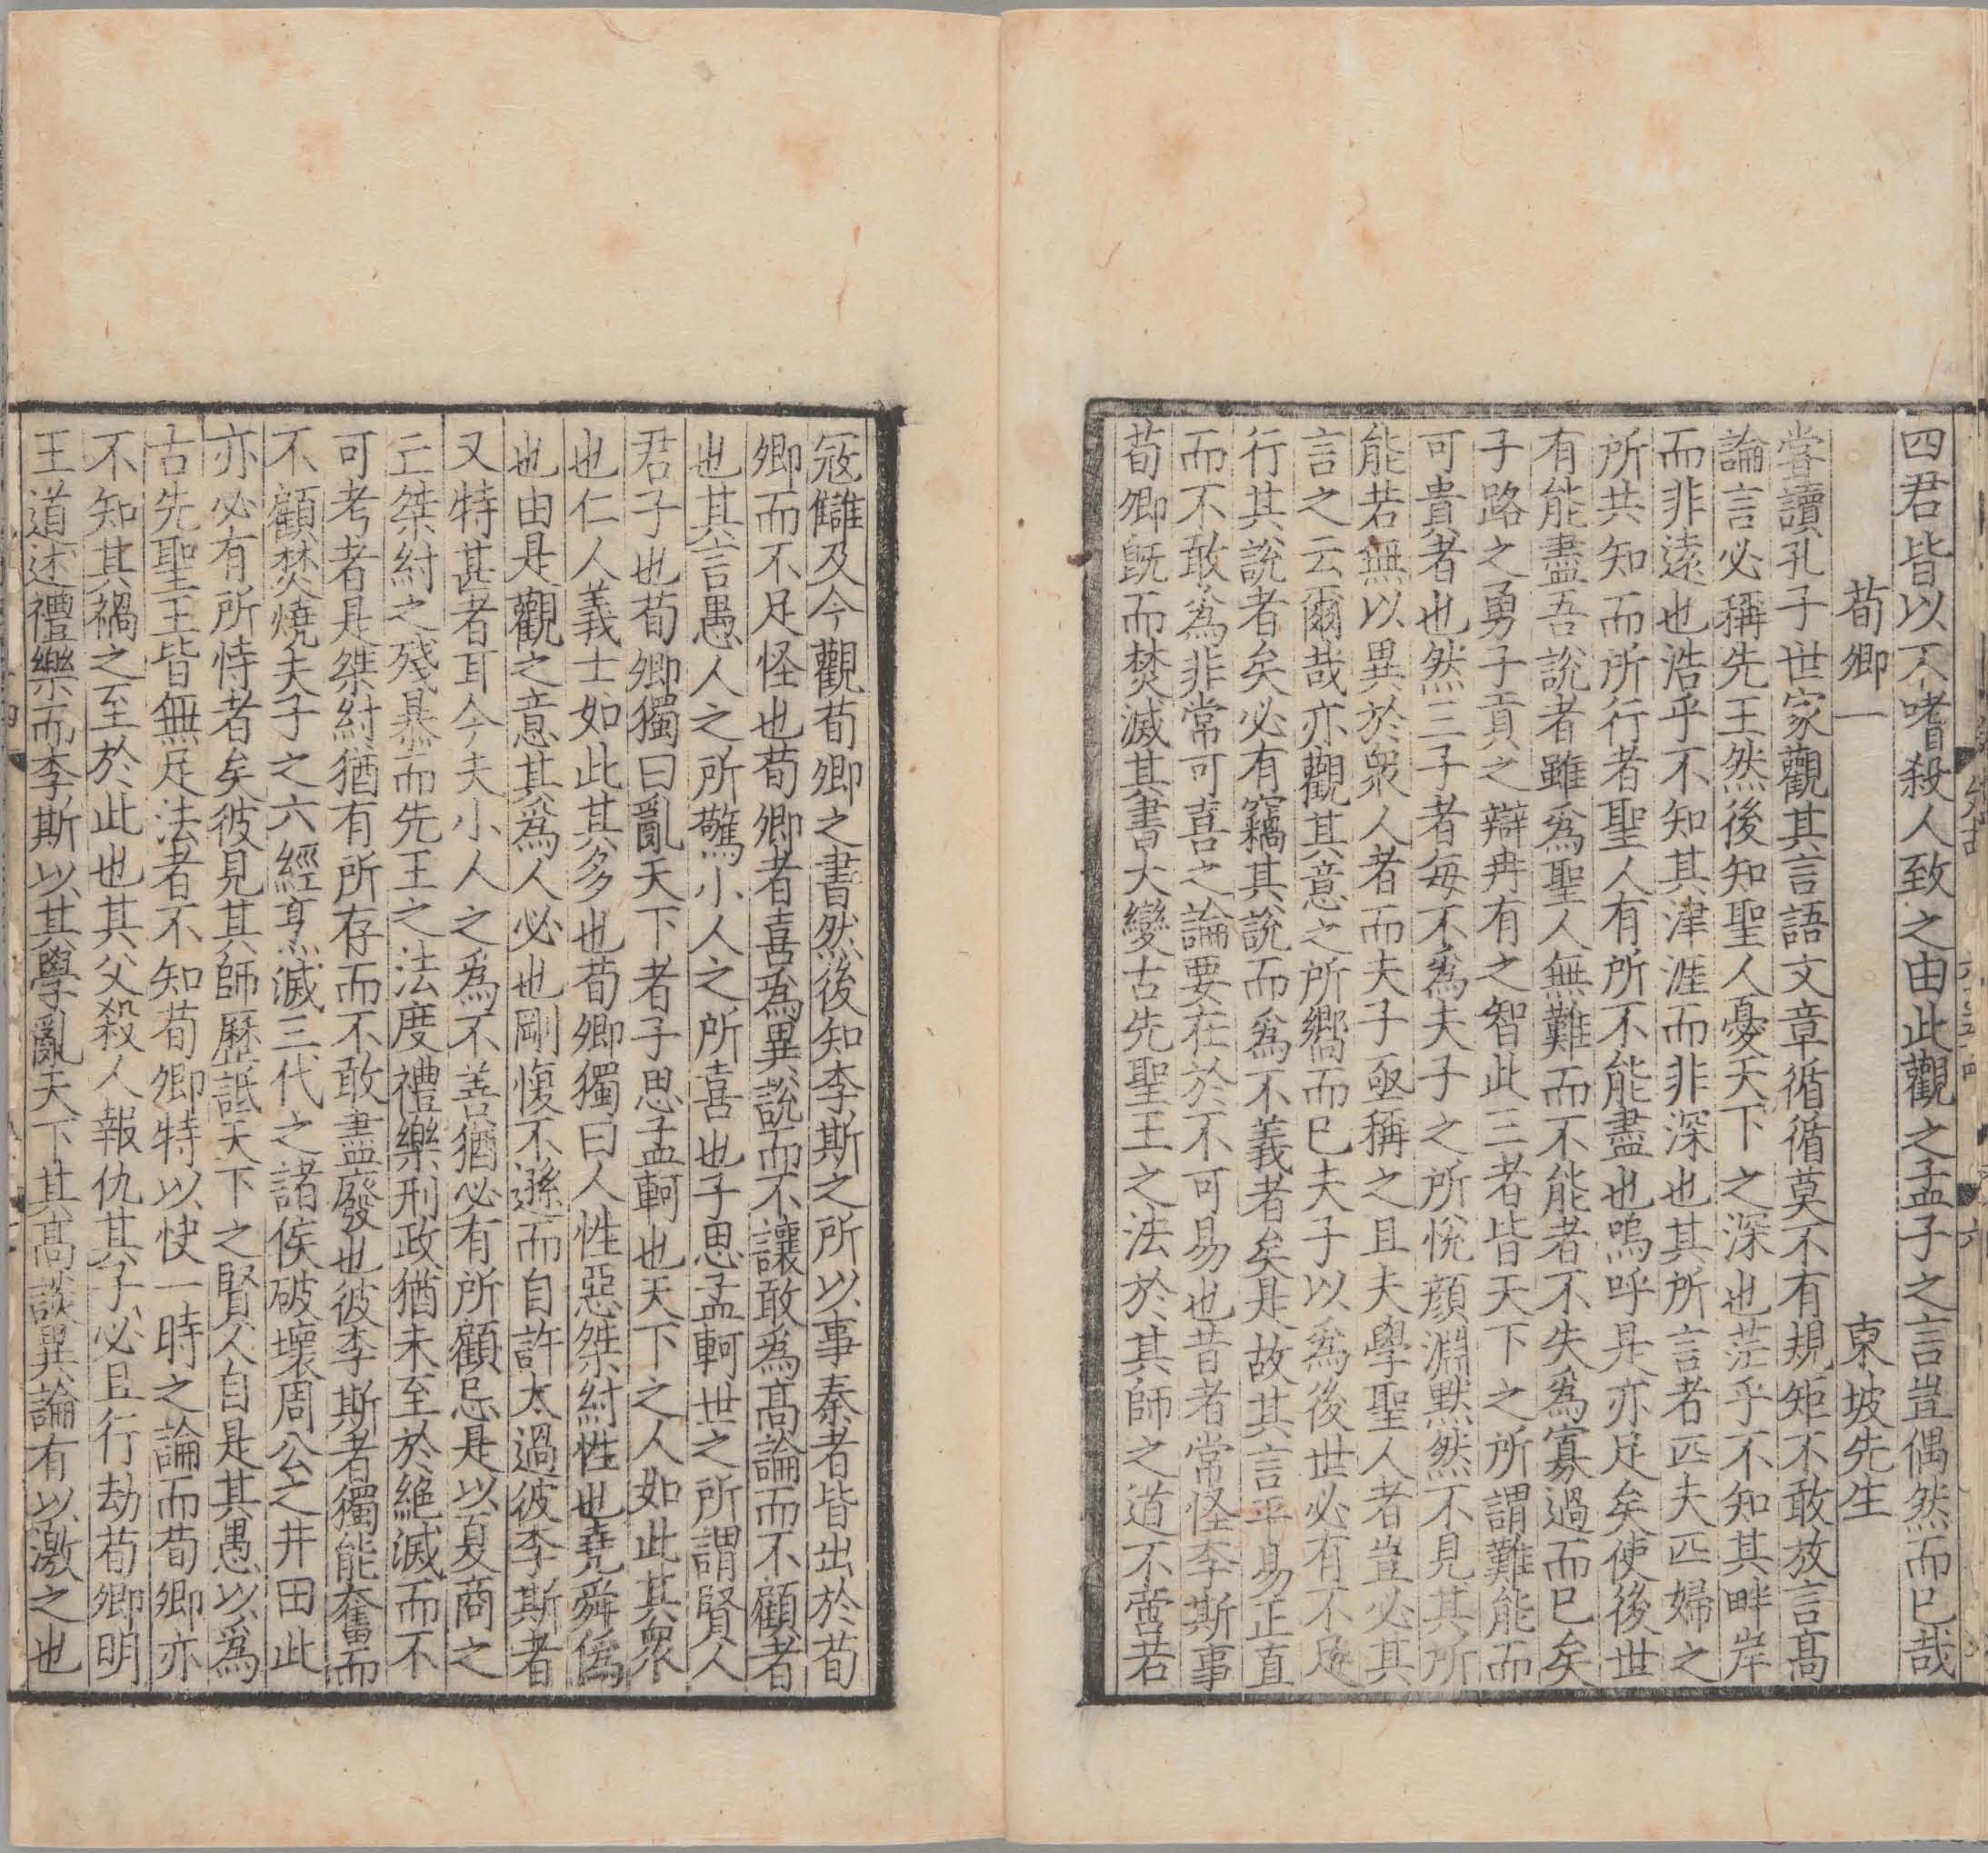 四君皆以不嗜殺人致之由此觀之孟子之言豈偶然而已哉
荀卿一 東坡先生
嘗讀孔子世家觀其言語文章循循莫不有規矩不敢放言髙
論言必稱先王然後知聖人憂天下之深也茫乎不知其畔岸
而非逺也浩乎不知其津涯而非深也其所言者匹夫匹婦之
所共知而所行者聖人有所不能盡也嗚呼是亦足矣使後世
有能盡吾說者雖爲聖人無難而不能者不失爲寡過而已矣
子路之勇子貢之辯冉有之智此三者皆天下之所謂難能而
可貴者也然三子者每不爲夫子之所悅顔淵黙然不見其所
能若無以異於衆人者而夫子亟稱之且夫學聖人者豈必其
言之云爾哉亦觀其意之所嚮而已夫子以爲後世必有不足
行其說者矣必有竊其說而爲不義者矣是故其言平易正直
而不敢爲非常可喜之論要在於不可易也昔者常怪李斯事
荀卿旣而焚滅其書大變古先聖王之法於其師之道不啻若
㓂讎及今觀荀卿之書然後知李斯之所以事秦者皆出於荀
卿而不足怪也荀卿者喜爲異說而不讓敢爲髙論而不顧者
也其言愚人之所驚小人之所喜也子思孟軻世之所謂賢人
君子也荀卿獨曰亂天下者子思孟軻也天下之人如此其衆
也仁人義士如此其多也荀卿獨曰人性惡桀紂性也堯舜僞
也由是觀之意其爲人必也剛愎不遜而自許太過彼李斯者
又特甚者耳今夫小人之爲不善猶必有所顧忌是以夏商之
亡桀紂之殘暴而先王之法度禮樂刑政猶未至於絶滅而不
可考者是桀紂猶有所存而不敢盡廢也彼李斯者獨能奮而
不顧焚燒夫子之六經烹滅三代之諸侯破壞周公之井田此
亦必有所恃者矣彼見其師歷詆天下之賢人自是其愚以爲
古先聖王皆無足法者不知荀卿特以快一時之論而荀卿亦
不知其禍之至於此也其父殺人報仇其子必且行劫荀卿明
王道述禮樂而李斯以其學亂天下其髙談異論有以激之也